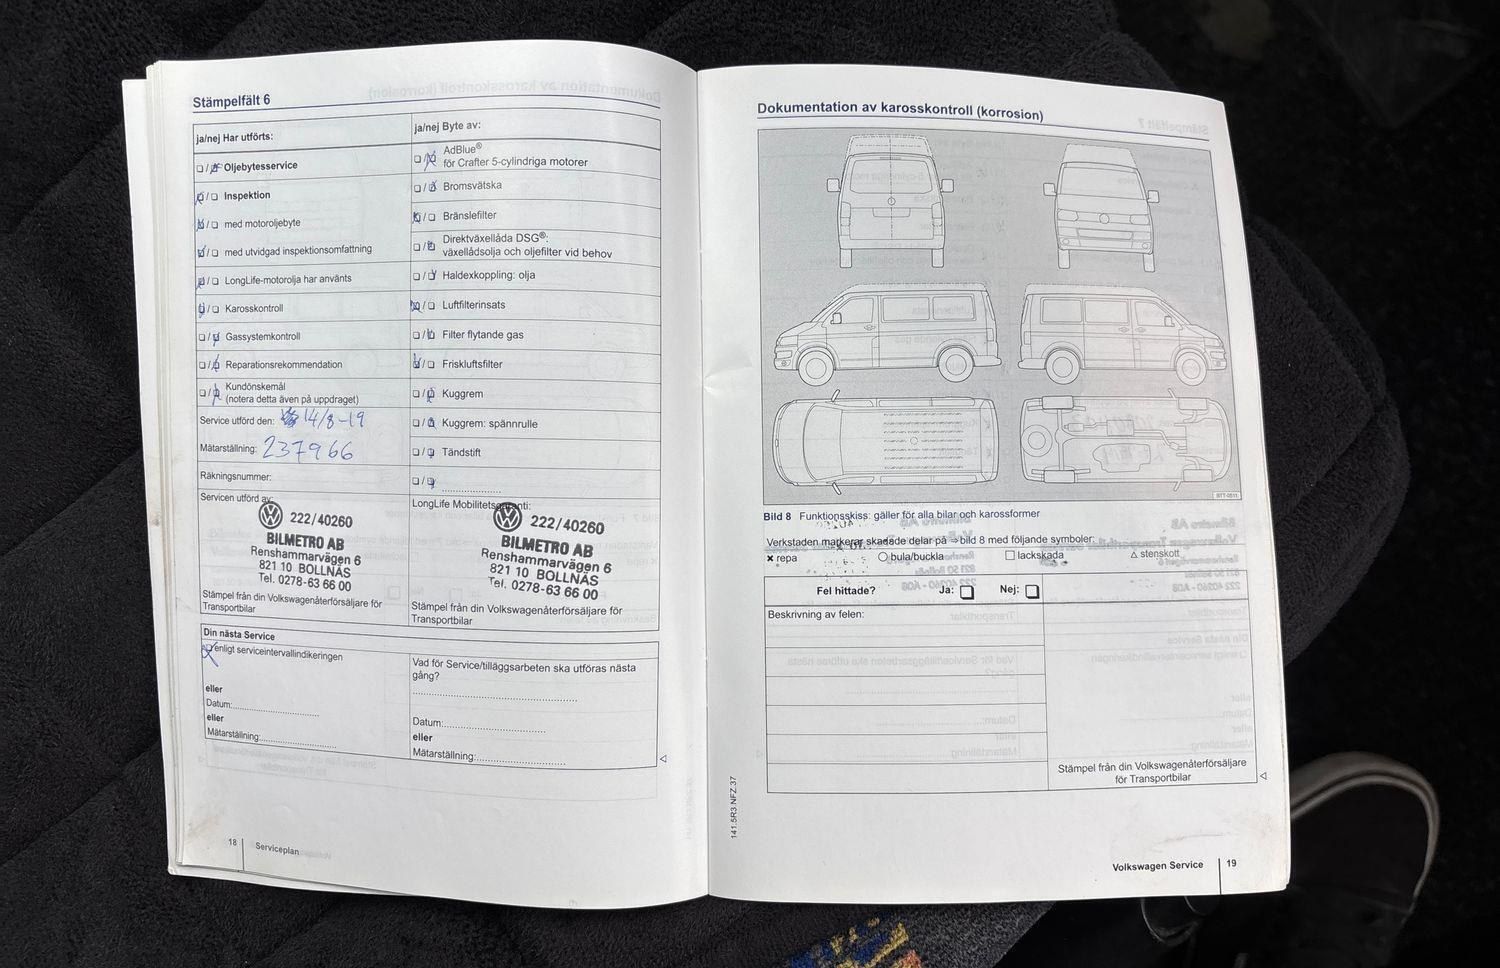 Stämpelfält 6
ja/nej Har utförts:
Oljebytesservice
Inspektion
med motoroljebyte
med utvidgad inspektionsomfattning
LongLife-motorolja har använts
Karosskontroll
Gassystemkontroll
Reparationsrekommendation
Kundönskemål
(notera detta även på uppdraget)
Service utförd den: 14/8-19
Mätarställning: 237966
Räkningsnummer:
Servicen utförd av:
222/40260
BILMETRO AB
Renshammarvägen 6
821 10 BOLLNÄS
Tel. 0278-63 66 00
Stämpel från din Volkswagenåterförsäljare för
Transportbilar
ja/nej Byte av:
AdBlue®
för Crafter 5-cylindriga motorer
Bromsvätska
Bränslefilter
Direktväxellåda DSG®:
växellådsolja och oljefilter vid behov
Haldexkoppling: olja
Luftfilterinsats
Filter flytande gas
Friskluftsfilter
Kuggrem
Kuggrem: spännrulle
Tändstift
LongLife Mobilitetsgaranti:
222/40260
BILMETRO AB
Renshammarvägen 6
821 10 BOLLNÄS
Tel. 0278-63 66 00
Stämpel från din Volkswagenåterförsäljare för
Transportbilar
Din nästa Service
enligt serviceintervallindikeringen
eller
Datum:
eller
Mätarställning:
Vad för Service/tilläggsarbeten ska utföras nästa
gång?
Datum:
eller
Mätarställning:
18
Serviceplan
Dokumentation av karosskontroll (korrosion)
BTT-0511
Bild 8 Funktionsskiss: gäller för alla bilar och karossformer
Verkstaden markerar skadade delar på ⇒ bild 8 med följande symboler:
× repa ○ bula/buckla □ lackskada △ stenskott
Fel hittade? Ja: □ Nej: □
Beskrivning av felen:
Stämpel från din Volkswagenåterförsäljare
för Transportbilar
141.5R3.NFZ.37
Volkswagen Service
19